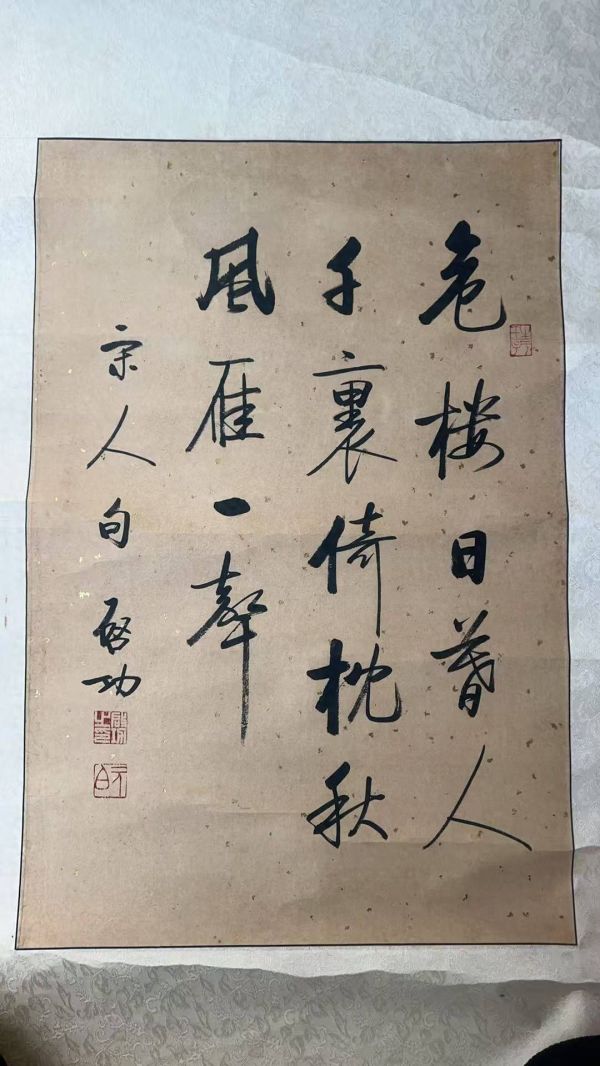 危楼日暮人
千裏倚枕秋
風雁一聲
宋人句 啓功